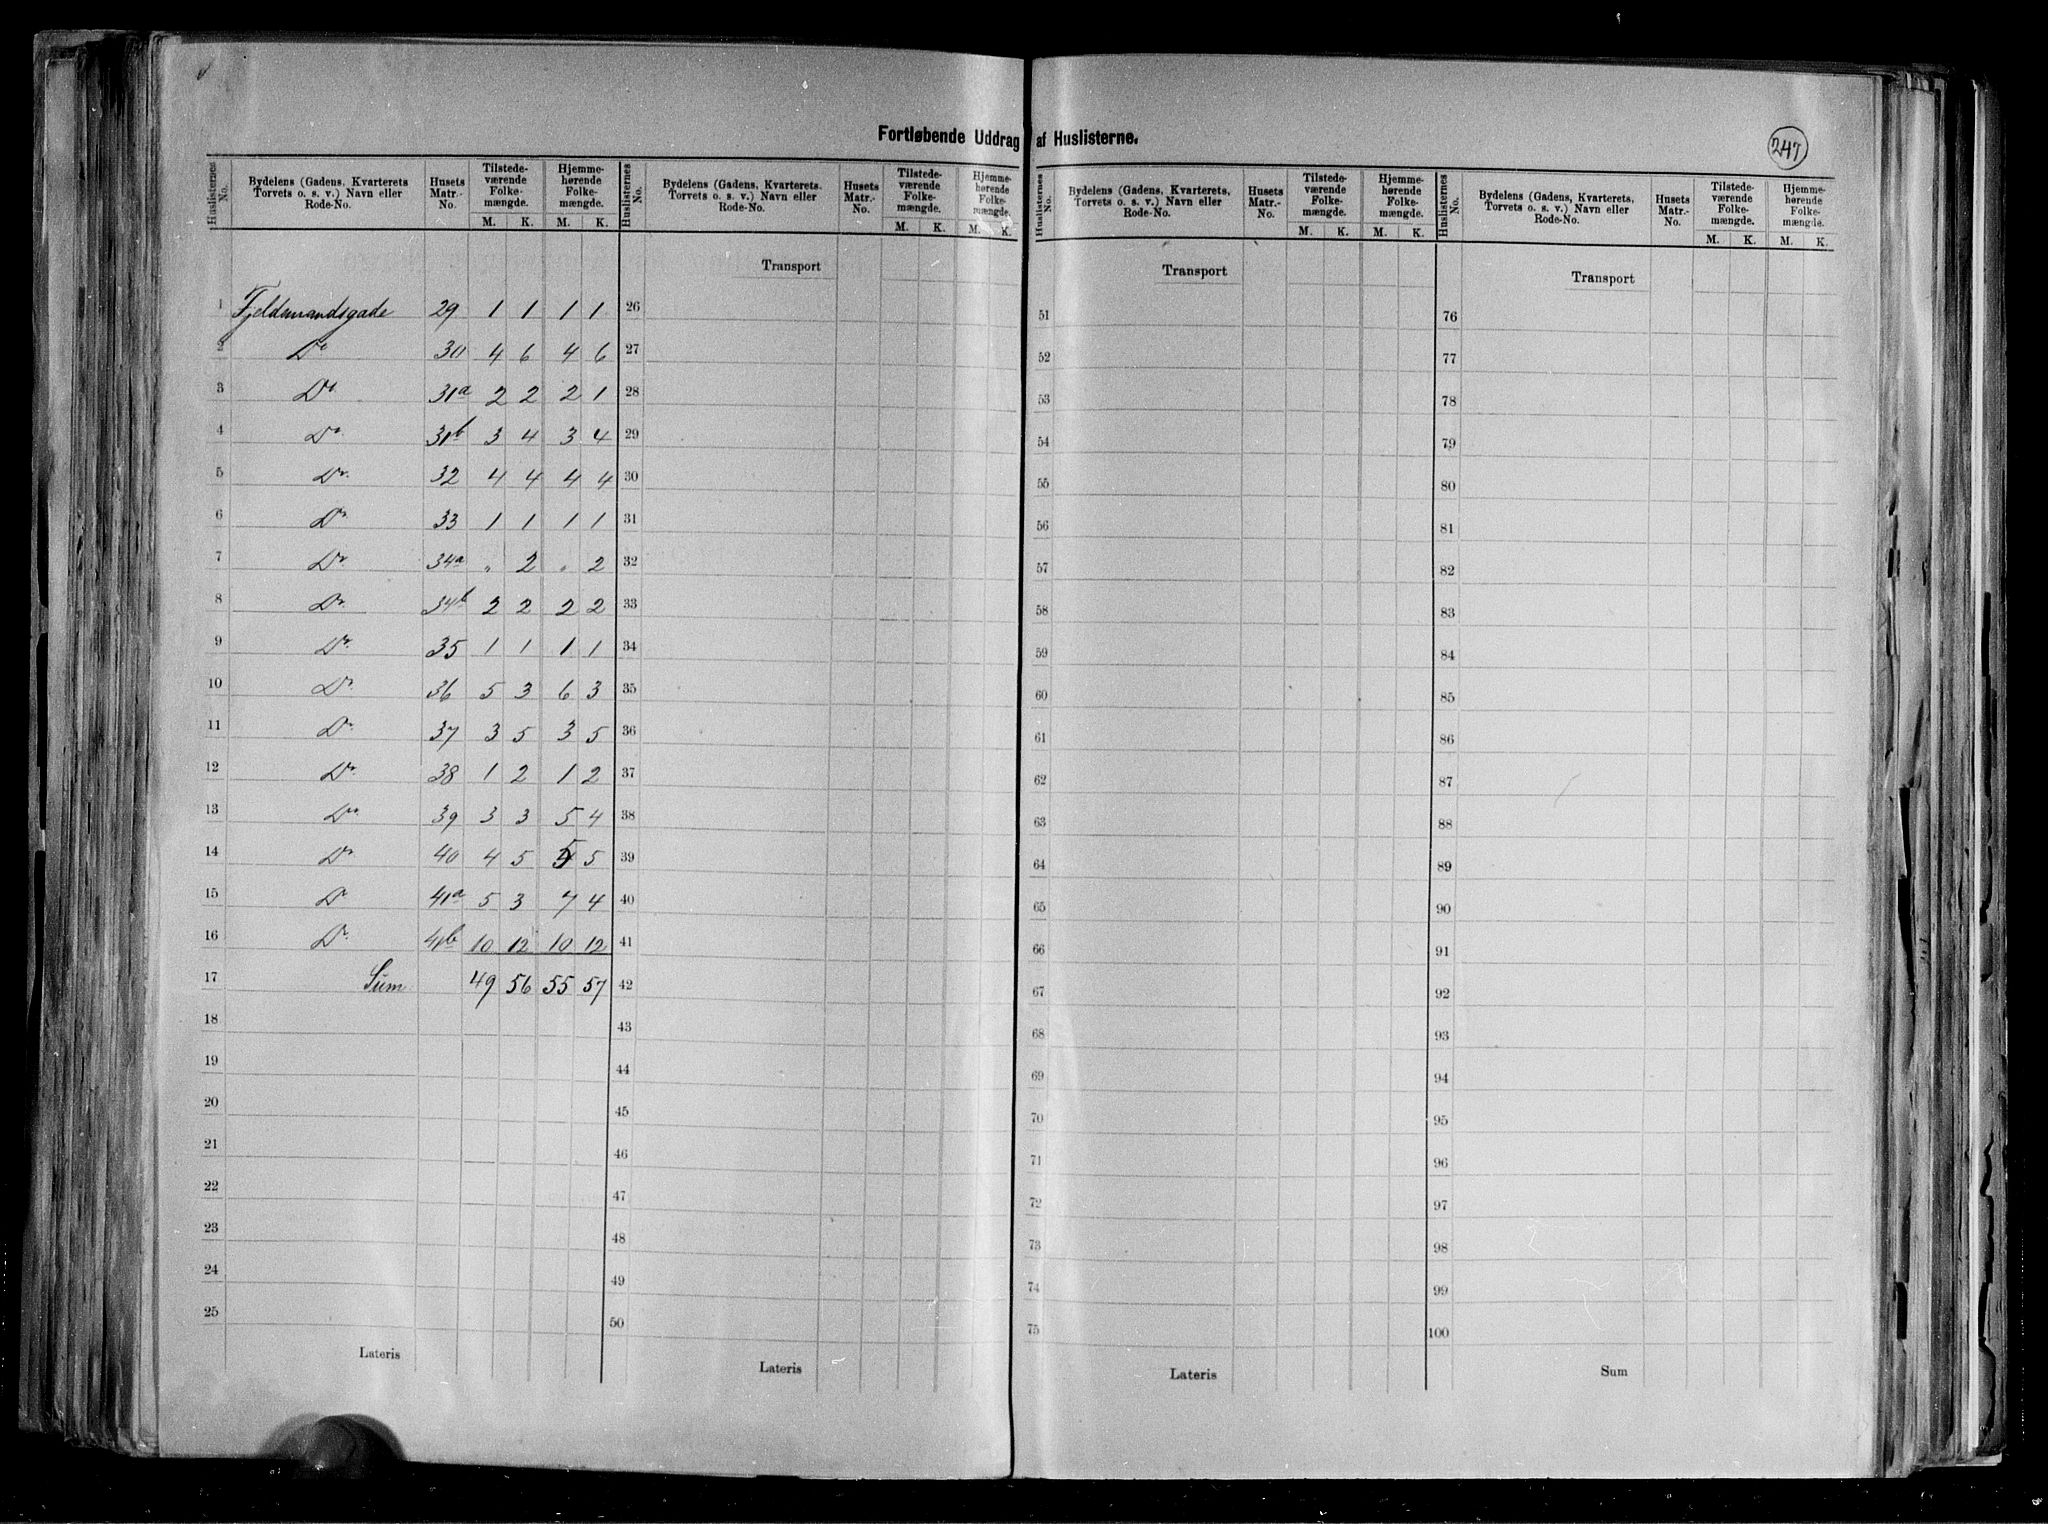 Fortløbende Uddrag af Huslisterne.
247
Huslisternes No. Bydelens (Gadens, Kvarterets Torvets o. s. v.) Navn eller Rode-No. Husets Matr.-No. Tilstedeværende Folkemængde. M. K. Hjemmehørende Folkemængde. M. K.
Huslisternes No. Bydelens (Gadens, Kvarterets, Torvets o. s. v.) Navn eller Rode-No. Husets Matr.-No. Tilstedeværende Folkemængde. M. K. Hjemmehørende Folkemængde. M. K.
Huslisternes No. Bydelens (Gadens, Kvarterets, Torvets o. s. v.) Navn eller Rode-No. Husets Matr.-No. Tilstedeværende Folkemængde. M. K. Hjemmehørende Folkemængde. M. K.
Huslisternes No. Bydelens (Gadens, Kvarterets, Torvets o. s. v.) Navn eller Rode-No. Husets Matr.-No. Tilstedeværende Folkemængde. M. K. Hjemmehørende Folkemængde. M. K.
Transport Transport Transport
1 Fjeldmandsgade 29 1 1 1 1 26 51 76
2 Do 30 4 6 4 6 27 52 77
3 Do 31a 2 2 2 1 28 53 78
4 Do 31b 3 4 3 4 29 54 79
5 Do 32 4 4 4 4 30 55 80
6 Do 33 1 1 1 1 31 56 81
7 Do 34a " 2 " 2 32 57 82
8 Do 34b 2 2 2 2 33 58 83
9 Do 35 1 1 1 1 34 59 84
10 Do 36 5 3 6 3 35 60 85
11 Do 37 3 5 3 5 36 61 86
12 Do 38 1 2 1 2 37 62 87
13 Do 39 3 3 5 4 38 63 88
14 Do 40 4 5 5 5 39 64 89
15 Do 41a 5 3 7 4 40 65 90
16 Do 41b 10 12 10 12 41 66 91
17 Sum 49 56 55 57 42 67 92
18 43 68 93
19 44 69 94
20 45 70 95
21 46 71 96
22 47 72 97
23 48 73 98
24 49 74 99
25 50 75 100
Lateris Lateris Lateris Sum